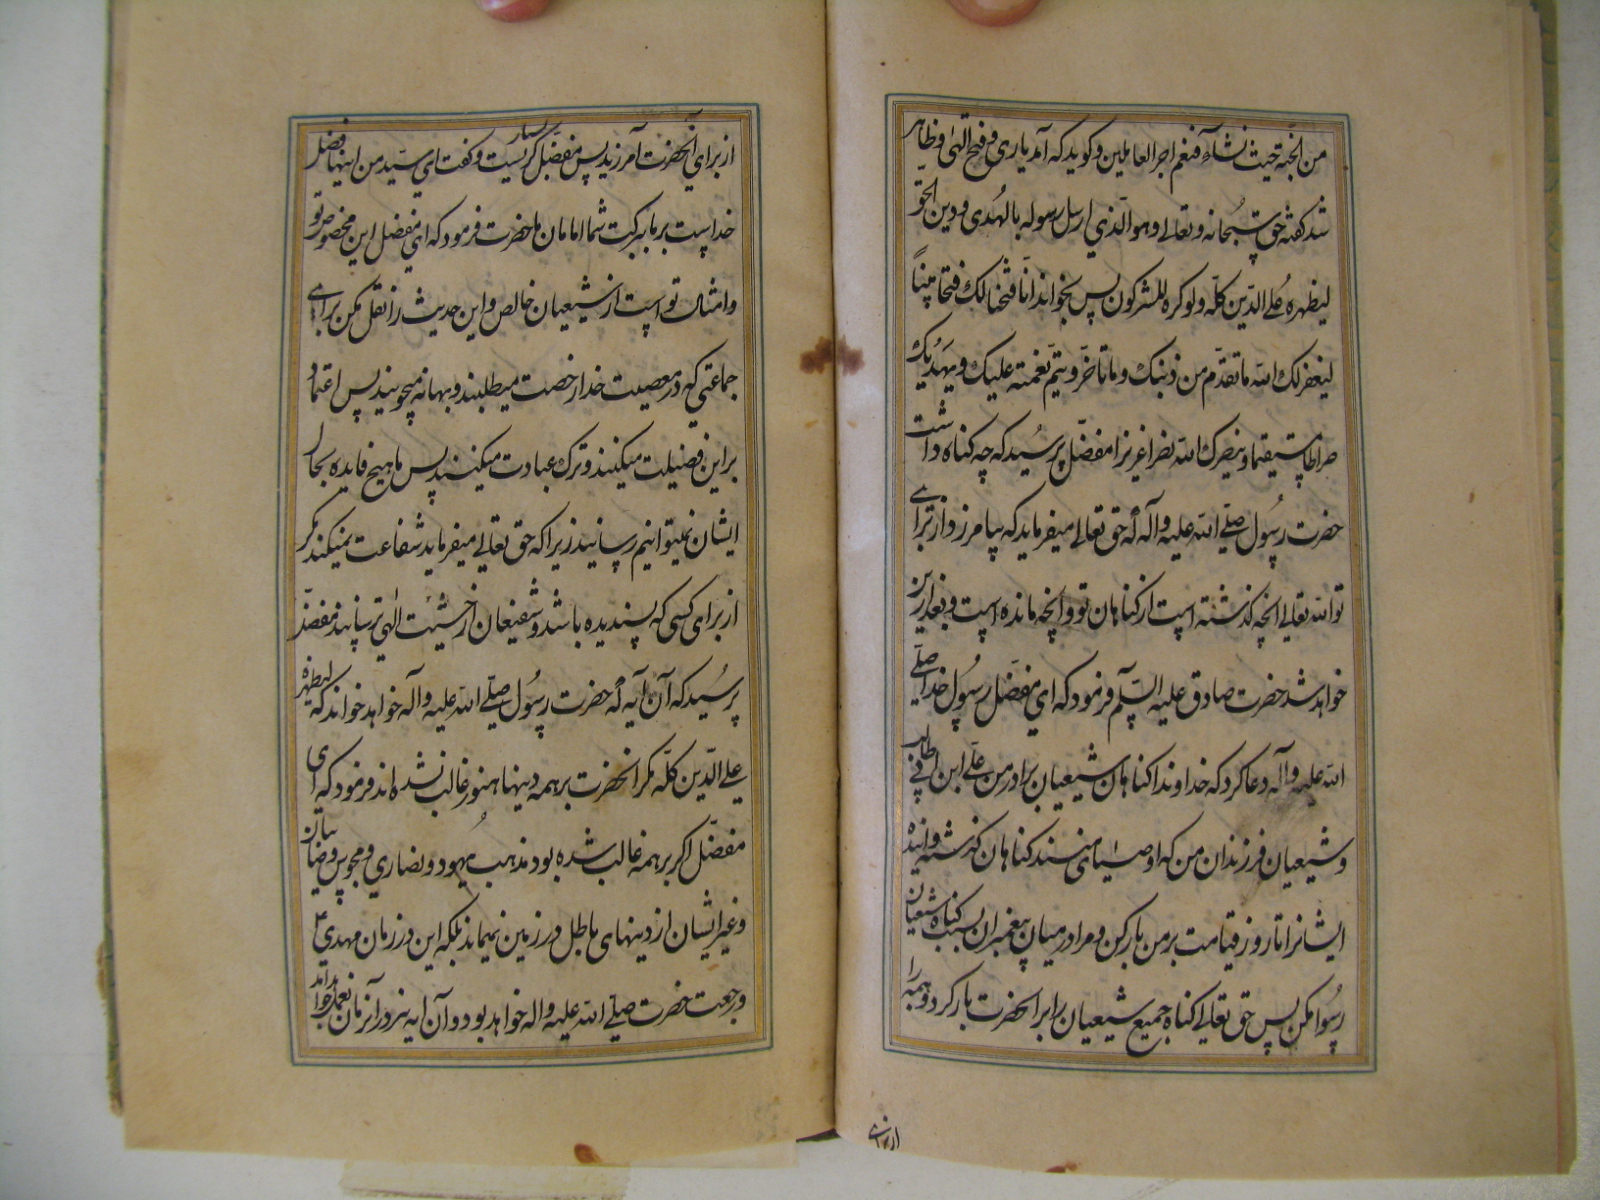 من الجنه حیث نشاء فنعم اجر العاملین و کوید که آمد یاری و فتح الهی و ظاهر
شد کفته حق سبحانه و تعالی و هو الذی ارسل رسوله بالهدی و دین الحق
لیظهره علی الدین کله و لو کره المشرکون پس بخواند انا فتحنا لک فتحا مبیناً
لیغفر لک الله ما تقدم من ذنبک و ما تاخر و یتم نعمته علیک و یهدیک
صراطا مستقیما و ینصرک الله نصرا عزیزا مفضل پرسید که چه کناه داشت
حضرت رسول صلی الله علیه و آله که حق تعالی میفرماید که بیامرزد از برای
تو الله تعالی انچه کذشته است از کناهان تو و انچه مانده است و بعد ازین
خواهد شد حضرت صادق علیه السلم فرمود که ای مفضل رسول خدا صلی
الله علیه و آله دعا کرد که خداوندا کناهان شیعیان برادر من علی ابن ابی طالب
و شیعیان فرزندان من که اوصیای منند کناهان کذشته و آینده
ایشانرا تا روز قیامت بر من بار کن و مرا در میان پیغمبران بسبب کناه شیعیان
رسوا مکن پس حق تعالی کناه جمیع شیعیان را بر انحضرت بار کرد و همه را
از برای
از برای آنحضرت آمرزید پس مفضل بسیار کریست و کفت ای سید من اینها فضل
خداست بر ما ببرکت شما امامان ما حضرت فرمود که ای مفضل این مخصوص تو
و امثال تو است از شیعیان خالص و این حدیث را نقل مکن برای
جماعتی که در معصیت خدا رخصت میطلبند و بهانه میجویند پس اعتماد
بر این فضیلت میکنند و ترک عبادت میکنند پس ما هیچ فایده بحال
ایشان نمیتوانیم رسانید زیرا که حق تعالی میفرماید شفاعت نمیکنند مکر
از برای کسی که پسندیده باشد و شفیعان از خشیت الهی ترسانند مفضل
پرسید که آن آیه که حضرت رسول صلی الله علیه و آله خواهد خواند که لیظهره
علی الدین کله مکر انحضرت بر همه دینها هنوز غالب نشده اند فرمود که ای
مفضل اکر بر همه غالب شده بود مذهب یهود و نصاری و مجوس و صابیان
و غیر ایشان از دینهای باطل در زمین نمیماند بلکه این در زمان مهدی ع
و رجعت حضرت صلی الله علیه و اله خواهد بود و آن ایه نیز در آنزمان بعمل خواهد آمد